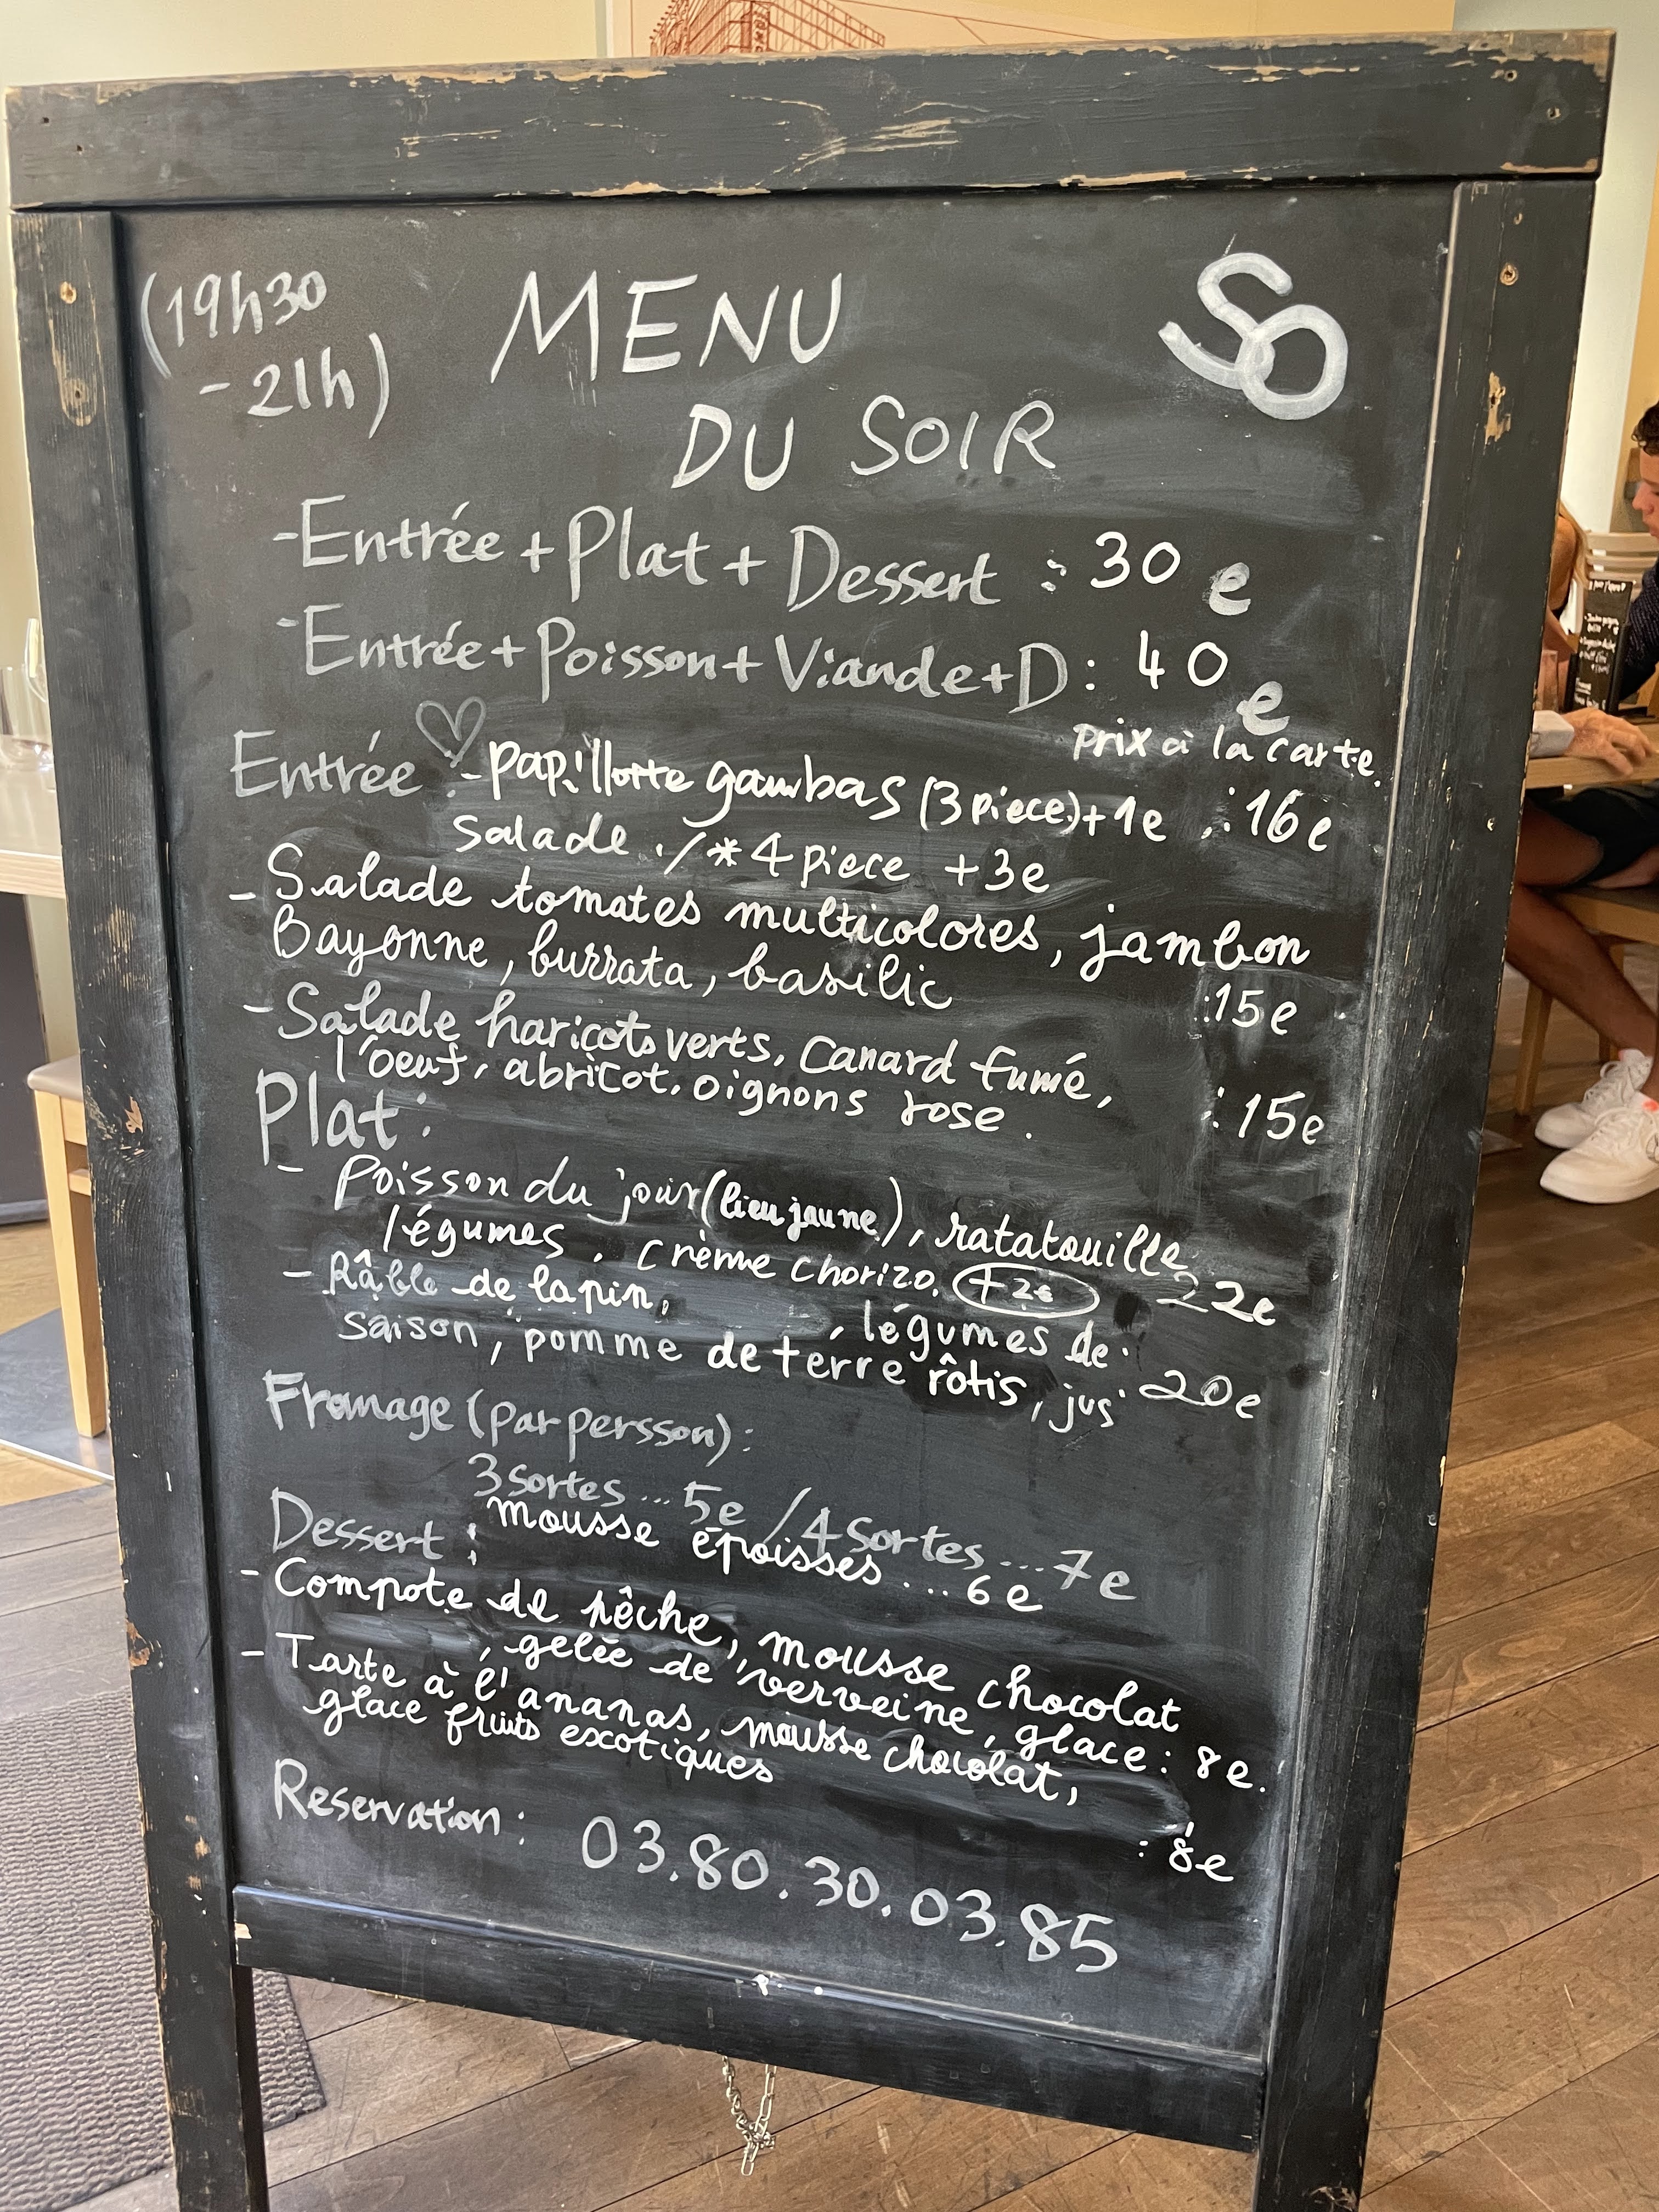 (19h30
- 21h)
MENU
DU SOIR
SO
- Entrée + Plat + Dessert : 30 e
- Entrée + Poisson + Viande + D : 40 e
prix à la carte.
Entrée : - papillotte gambas (3 piece) + 1e : 16e
salade . / * 4 piece + 3e
- Salade tomates multicolores, jambon
Bayonne, burrata, basilic : 15e
- Salade haricots verts, Canard fumé,
l'oeuf, abricot, oignons rose. : 15e
Plat :
- Poisson du jour (lieu jaune), ratatouille
légumes, crème chorizo. +2e 22e
- Râble de lapin, , légumes de
saison, pomme de terre rôtis, jus 20e
Fromage (par persson) :
3 sortes ... 5e / 4 Sortes ... 7e
mousse époisses ... 6e
Dessert :
- Compote de pêche, mousse chocolat
, gelée de verveine, glace : 8e.
- Tarte à l'ananas, mousse chocolat,
glace fruits excotiques : 8e
Reservation : 03.80.30.03.85